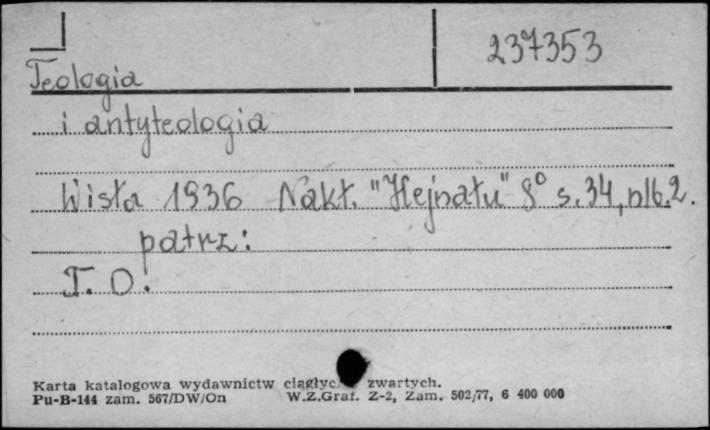 237353
Teologia
i antyteologia
Wisła 1936 Nakł. "Hejnału" 8° s. 34, nlb. 2.
patrz:
T. O.
Karta katalogowa wydawnictw zwartych.
Pu-B-144 zam. 567/DW/On W.Z.Graf. Z-2, Zam. 502/77, 6 400 000